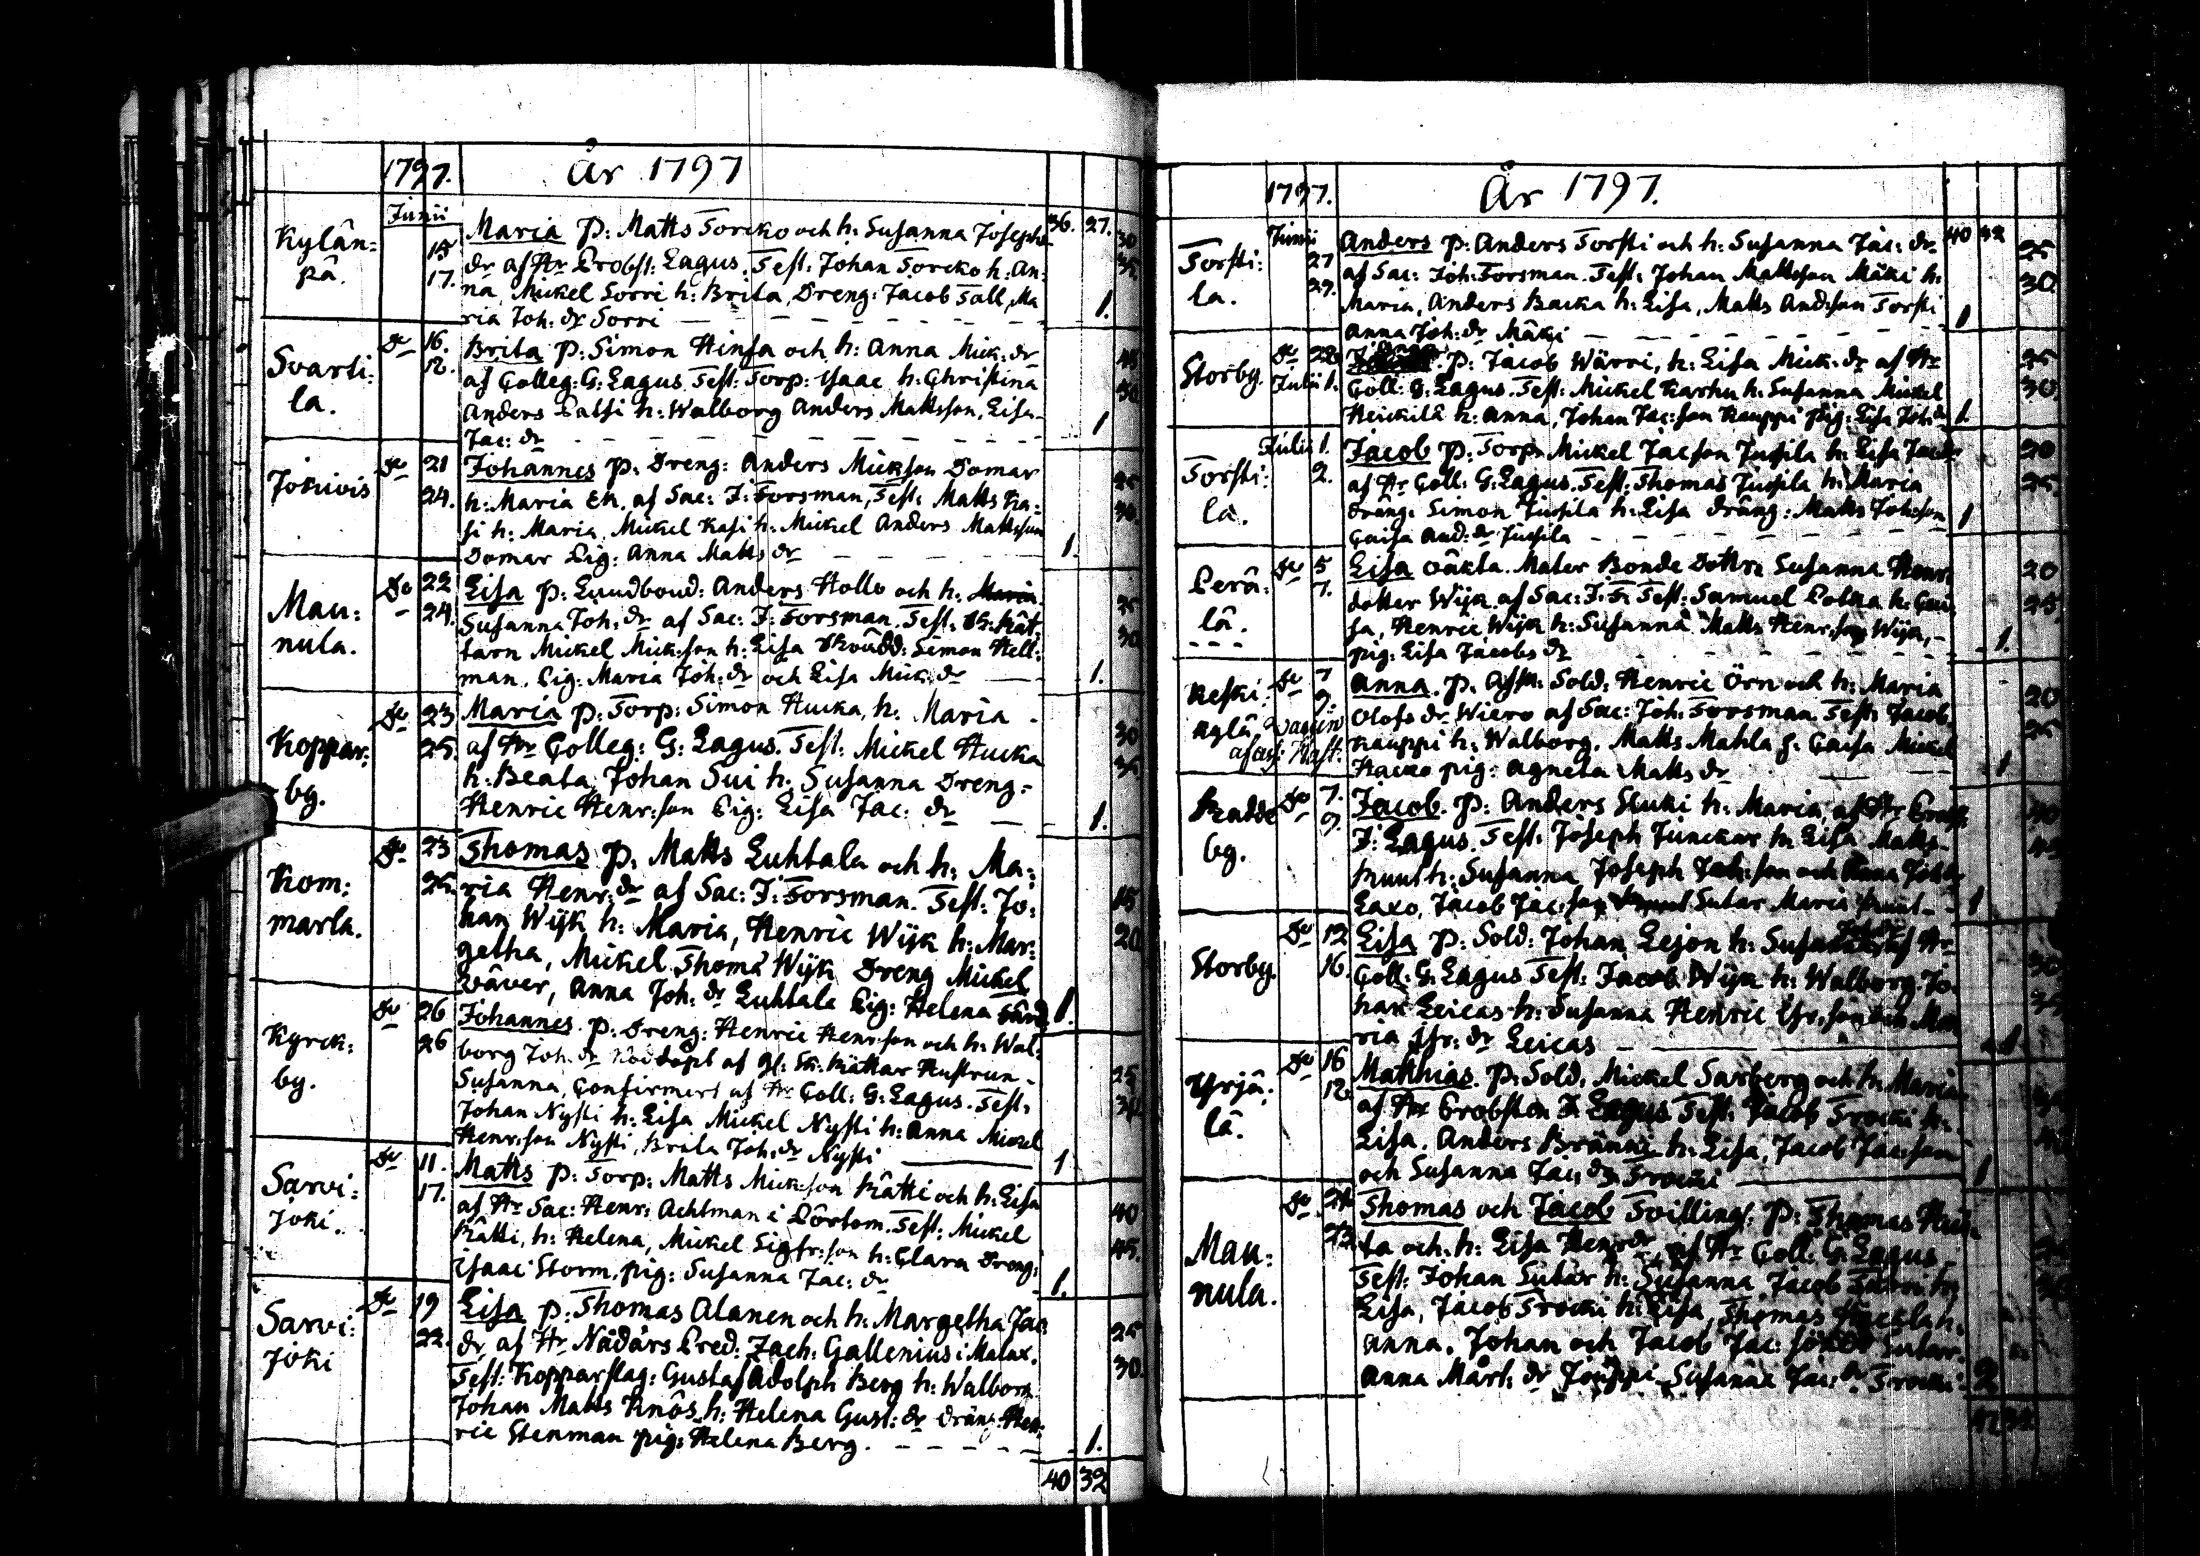 1797. År 1797
Junii
Kylän:
pä.
15
17.
Maria p: Matts Torcko och h: Susanna Josephs 36. 27. 30
dr af Hr Probst: Lagus. Test: Johan Torcko h: An: 35
na, Mickel Sorri h: Brita, Dreng: Jacob Tall, Ma
ria Joh: dr Sorri 1.
Svarti:
la.
De 16.
18.
Brita p: Simon Hinsa och h: Anna Mick: dr 45
af Colleg: G: Lagus. Test: Torp: Isaac h: Christina 50
Anders Palsi h: Walborg Anders Mattsson, Lisa
Jac: dr 1
Jokivis
De 21
24.
Johannes p: Dreng: Anders Mickson Domar 25
h: Maria Er. af Sac: J: Forsman, Test: Matts Ka: 30.
si h: Maria, Mickel Kasi h: Mickel Anders Mattsson
Domar Pig: Anna Matts dr 1.
Mau:
nula.
De 22
24.
Lisa p: Lundbond: Anders Hollo och h: Maria 25
Susanna Joh: dr af Sac: J: Forsman. Test: Sk: Kät 30
tarn Mickel Mick:son h: Lisa Skrädd: Simon Hell:
man. Pig: Maria Joh: dr och Lisa Mick: dr 1.
Koppar:
by.
De 23
25.
Maria p: Torp: Simon Hucka, h: Maria 30
af Hr Colleg: G: Lagus. Test: Mickel Hucka 35
h: Beata, Johan Sui h: Susanna Dreng:
Henric Henr:son Pig: Lisa Jac: dr 1.
Kom:
marla.
De 23
25.
Thomas p. Matts Luhtala och h: Ma:
ria Henr: dr af Sac: J: Forsman. Test: Jo: 15
han Wijk h: Maria, Henric Wijk h: Mar: 20
getha, Mickel Thoma Wijk Dreng Mickel
Wäver, Anna Joh: dr Luhtala Pig: Helena 1.
Kyrck:
by.
De 26
26
Johannes. p: Dreng: Henric Henr:son och h: Wal:
borg Joh: dr Nöddöpt af Gl: Sk: Kättar Hustrun 25
Susanna, Confirmert af Hr Coll: G: Lagus. Test: 30
Johan Nysti h: Lisa Mickel Nysti h: Anna Mickel
Henr:son Nysti, Brita Joh: dr Nysti 1
Sarvi:
joki.
De 11.
17.
Matts p: Torp: Matts Mick:son Kätti och h: Lisa
af Hr Sac: Henr: Achtman i Pörtom. Test: Mickel 40
Kätti, h: Helena, Mickel Sigfr:son h: Clara Dreng: 45.
Isaac Storm, pig: Susanna Jac: dr 1.
Sarvi:
joki
De 19
22.
Lisa p: Thomas Alanen och h: Margetha Jac:
dr af Hr Nådårs Pred: Zach: Gallenius i Malax. 25
Test: Kopparslag: Gustaf Adolph Berg h: Walborg 30
Johan Matts Knös h: Helena Gust: dr dräng: Hen:
ric Stenman pig: Helena Berg. 1.
40 32
1797. År 1797.
Junii
Torsti:
la.
27
29.
Anders p: Anders Torsti och h: Susanna Jac: dr 40 32 25
af Sac: Joh: Forsman. Test: Johan Mattsson Mäki h: 30
Maria, Anders Backa h: Lisa, Matts And:son Torsti
Anna Joh: dr Mäki 1
Storby
De 28
Julii 1.
p: Jacob Wärri, h: Lisa Mick: dr af Hr 25
Coll: G: Lagus. Test: Mickel Karhu h: Susanna Mickel 30
Heickilä h: Anna, Johan Jac:son Kauppi pig: Lisa Joh: dr 1.
Torsti:
la.
Julii 1.
2.
Jacob p: Torp: Mickel Jacson Jussila h: Lisa Jac: dr 20
af Hr Coll: G: Lagus. Test: Thomas Jussila h: Maria 25.
dräng: Simon Jussila h: Lisa dräng: Matts Johsson
Caisa And: dr Jussila 1
Perä:
lä.
De 5
7.
Lisa oäkta. Mater Bonde Dottr: Susanna Henr: 20
dotter Wijk. af Sac: J: F: Test: Samuel Polka h: Cai: 25.
sa, Henric Wijk h: Susanna Matts Henr:son Wijk,
pig: Lisa Jacobs dr 1.
Keski
kylä
De 7
9.
Anna. p. Afsk: Sold: Henric Örn och h: Maria 20
Olofs dr Wiero af Sac: Joh: Forsman. Test: Jacob 25
Kauppi h: Walborg. Matts Mahla h: Caisa Mickel
Hacko pig: Agneta Matts dr 1
Kadde
by.
De 7.
9.
Jacob. p: Anders Stuki h: Maria, af Hr Probst 40
J: Lagus. Test: Joseph Junckar h: Lisa Matts
Knuut h: Susanna Joseph Jos:son och Anna Joh: dr
Laxo, Jacob Jac:son Sutar Maria 1
Storby
De 12
16.
Lisa p: Sold: Johan Lejon h: Susanna af Hr
Coll: G: Lagus Test: Jacob Wijk h: Walborg Jo: 30
han Leicas h: Susanna Henric 35
ria Joh: dr Leicas 1
Yrjä:
lä.
De 16
18
Mathias. p: Sold: Mickel Sarberg och h: Maria
af Hr Probsten J: Lagus Test: Jacob Frocki h:
Lisa. Anders Bränni h: Lisa, Jacob Jac:son
och Susanna Jac: dr Frocki 1
Mau:
nula.
De
23.
Thomas och Jacob Tvilling: p: Thomas
ta och h: Lisa Henr: dr af Hr Coll: G: Lagus
Test: Johan Sutar h: Susanna, Jacob h:
Lisa, Jacob Frocki h: Lisa, Thomas h:
Anna. Johan och Jacob Jac: söner Sutar.
Anna Mårt: dr Jouppi Susanna Jac: dr Frocki 2